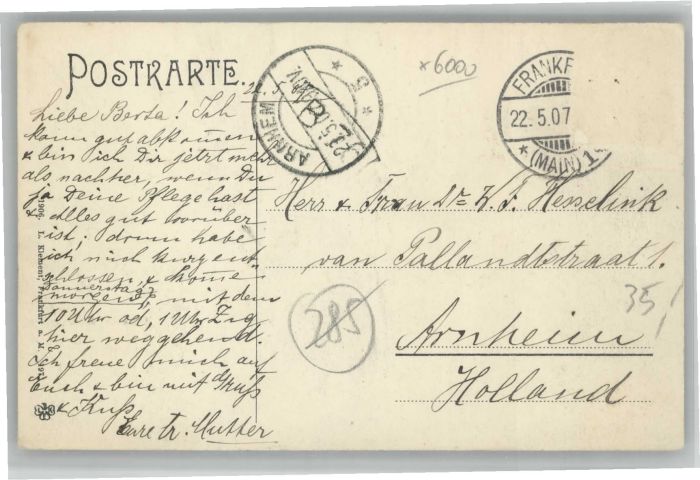 POSTKARTE.
22. 5. 07
Liebe Berta! Ich
kann gut abkommen
& bin ich Dir jetzt mehr
als nachher, wenn Du
ja Deine Pflege hast
& alles gut vorüber
ist; drum habe
ich mich kurz ent-
schlossen, & komme
Donnerstag
morgend, mit dem
10 Uhr od. 1 Uhr Zug
hier weggehend.
Ich freue mich auf
Euch & bin mit Gruß
& Kuß
Eure tr. Mutter
ARNHEM
FRANKF
22. 5. 07
* (MAIN) 1
×6000
Herr & Frau Dr W. F. Hesselink
van Pallandtstraat 1.
Arnheim
Holland
285
35
1906. L. Klement, Frankfurt a. M.